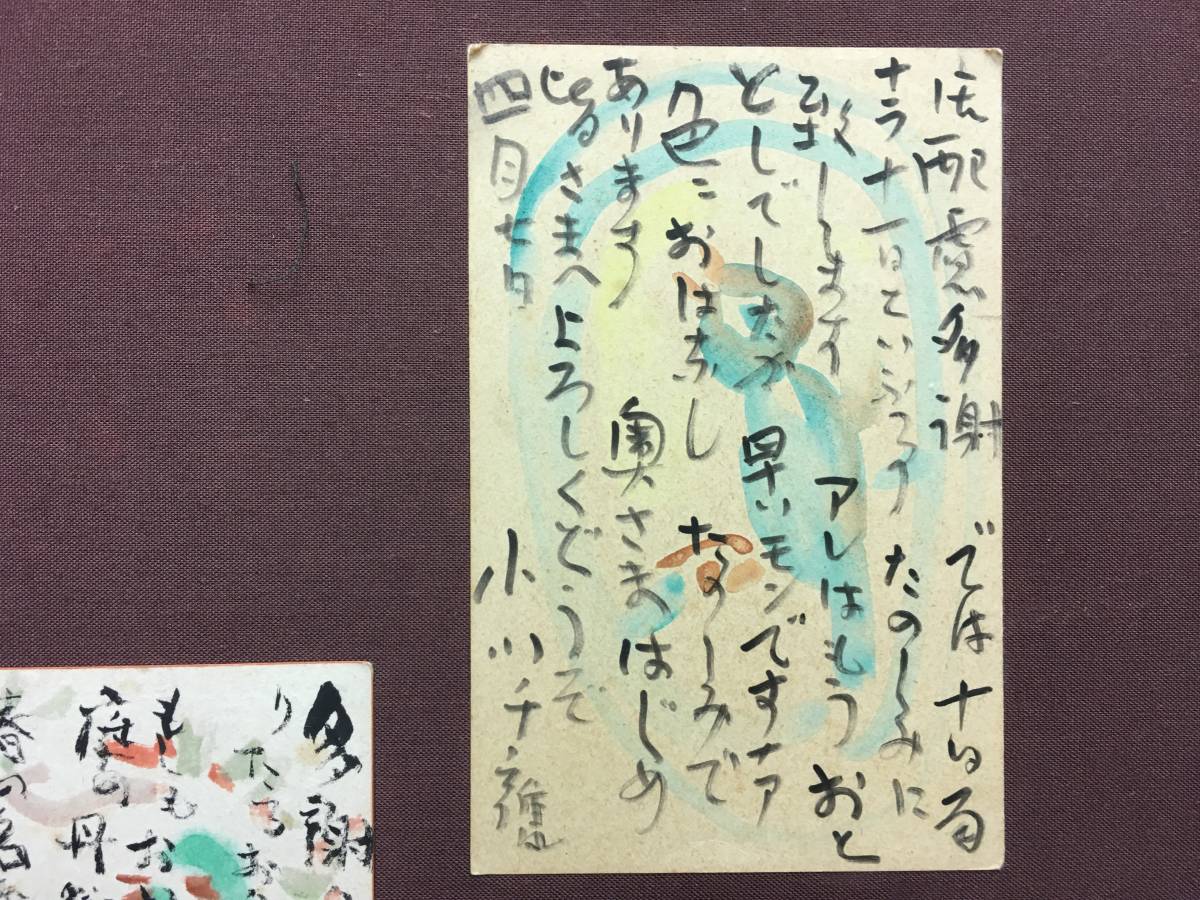 配慮多謝 では 十日雨
ナラ十一日といふつもり たのしみに
致します アレはもう おと
としでしたが 早いモンですナア
おはなし たのしみで
あります 奥さまはじめ
さまへよろしくどうぞ
四月七日 小川千甕
多謝
りたるお
もしもお
庭の丹
春の